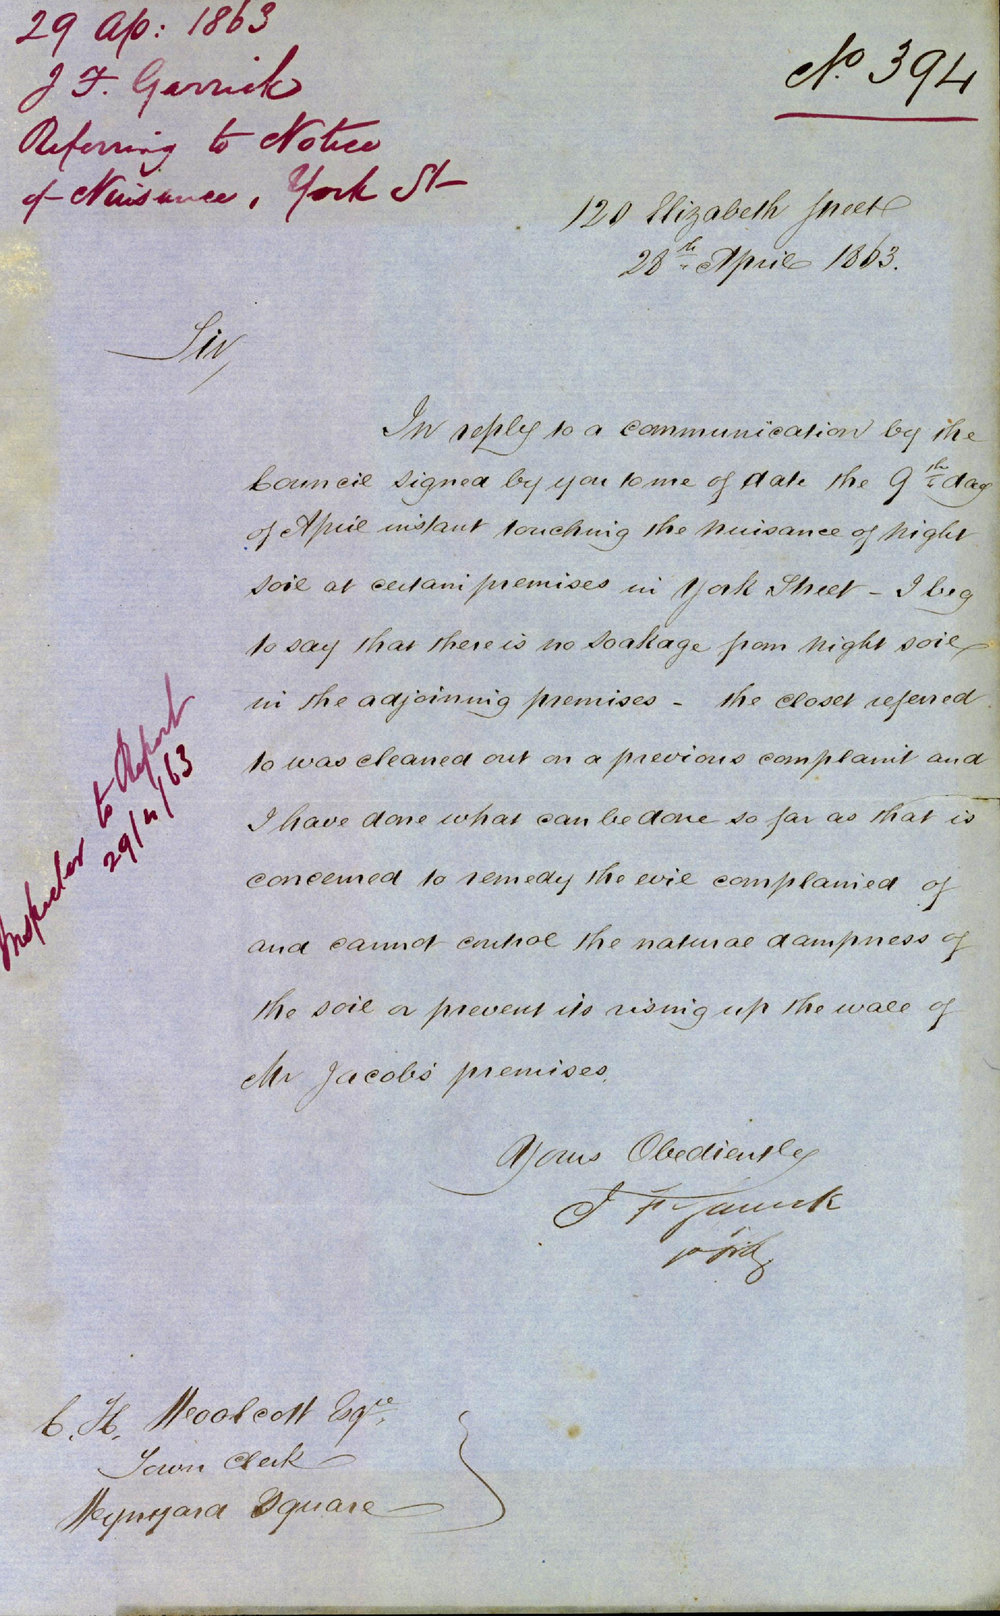 29 Ap: 1863
J F. Garrick
Referring to Notice
of Nuisance, York St
No 394
120 Elizabeth Street
28th April 1863.
Sir,
In reply to a communication by the
Council signed by you to me of date the 9th day
of April instant touching the nuisance of night
soil at certain premises in York Street - I beg
to say that there is no soakage from night soil
in the adjoining premises - the closet referred
to was cleaned out on a previous complaint and
I have done what can be done so far as that is
concerned to remedy the evil complained of
and cannot control the natural dampness of
the soil or prevent its rising up the wall of
Mr Jacobs' premises.
Inspector to Report
29/4/63
Yours Obediently
J F Garrick
C. H. Woolcott Esqre.
Town Clerk
Wynyard Square